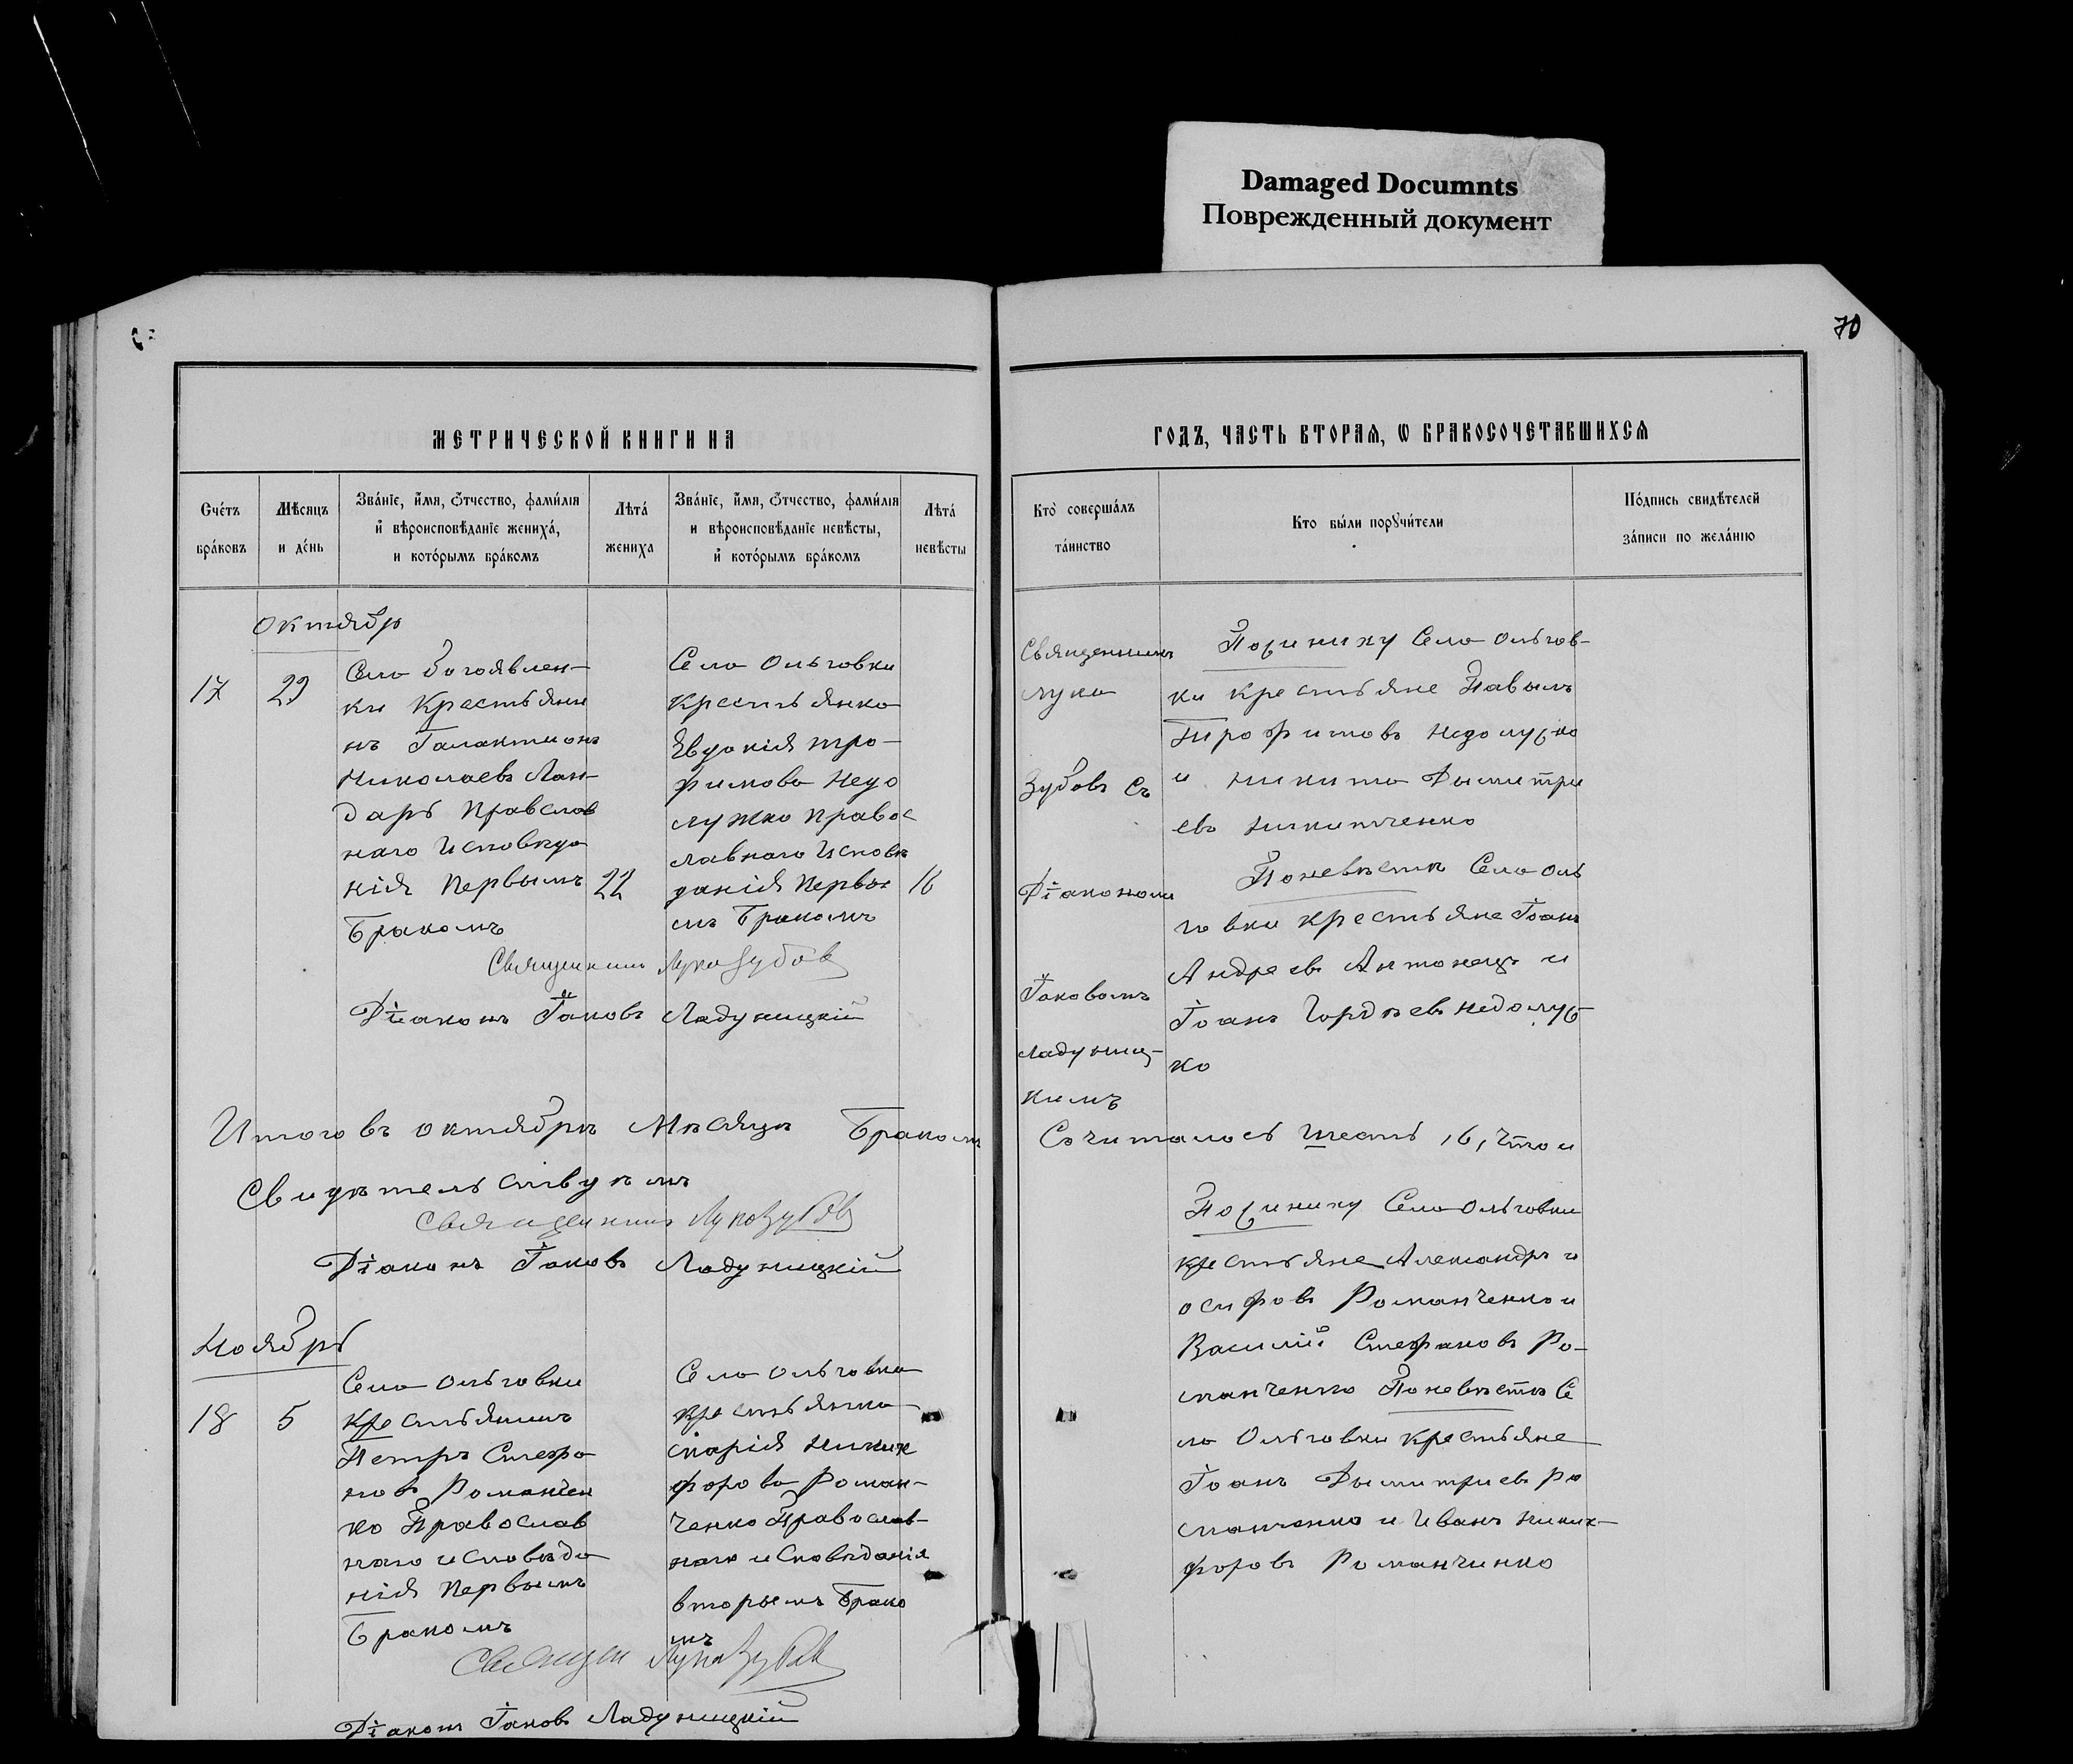 Damaged Documnts
Поврежденный документ
70
МЕТРИЧЕСКОЙ КНИГИ НА
ГОДЪ, ЧАСТЬ ВТОРАЯ, Ѡ БРАКОСОЧЕТАВШИХСЯ
Счетъ браковъ
Мѣсяцъ и день
Званіе, имя, отчество, фамилія
и вѣроисповѣданіе жениха,
и которымъ бракомъ
Лѣта жениха
Званіе, имя, отчество, фамилія
и вѣроисповѣданіе невѣсты,
и которымъ бракомъ
Лѣта невѣсты
Кто совершалъ
таинство
Кто были поручители
Подпись свидѣтелей
записи по желанію
Октябр
17
29
Село Богоявлен-
ки Крестьяни
нъ Галактионъ
Николаевъ Лан-
дарь Правслав
наго Исповѣда
нія Первымъ
Бракомъ
22
Село Ольговки
Крестьянка
Евдокія Тро-
фимова Недо
лужко Правос
лавнаго Исповѣ
данія Первы
мъ Бракомъ
16
Священникъ
Лука
Зубовъ съ
Діакономъ
Іаковомъ
Ладуниц-
кимъ
Село Ольгов-
ки Крестьяне
Трофимовъ
и Никита Дымитри
евъ Никитченко
Поневѣстѣ Село Оль
говки Крестьяне Іоанъ
Андреевъ Антонецъ и
Іоанъ Гордѣевъ
ко
Священникъ Лука Зубовъ
Діаконъ Іаковъ Ладуницкій
Итого въ октябрѣ Мѣсяцѣ Бракомъ
Съчиталось шесть, 6, что и
Свидѣтельствуемъ
Священникъ Лука Зубовъ
Діаконъ Іаковъ Ладуницкій
Ноябрь
18
5
Село Ольговки
Крестьянинъ
Петръ Стефа
новъ Романчен
ко Православ
наго исповѣда
нія Первымъ
Бракомъ
Село Ольговки
Крестьянка
Марія Никиѳ
форова Роман-
ченко Православ-
наго исповѣданія
вторымъ Брако
мъ
Село Ольговки
Крестьяне Александръ
осифовъ Романченко и
Василій Стефановъ Ро-
манченко Поневѣстѣ Се
ло Ольговки Крестьяне
Іоанъ Дымитриевъ Ро
манченко и Иванъ Ники-
форовъ Романчинко
Священ Лука Зубовъ
Діаконъ Іаковъ Ладуницкій